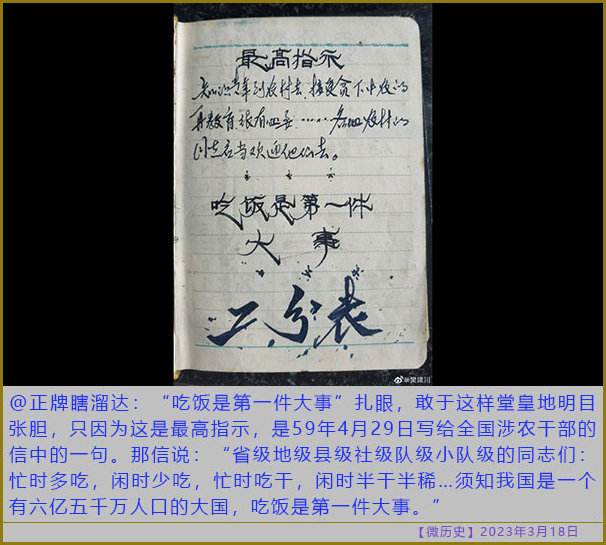 最高指示
知识青年到农村去，接受贫下中农的
再教育，很有必要……各地农村的
同志应当欢迎他们去。
吃饭是第一件
大事
工分表
@樊建川
@正牌瞎溜达：“吃饭是第一件大事”扎眼，敢于这样堂皇地明目
张胆，只因为这是最高指示，是59年4月29日写给全国涉农干部的
信中的一句。那信说：“省级地级县级社级队级小队级的同志们：
忙时多吃，闲时少吃，忙时吃干，闲时半干半稀…须知我国是一个
有六亿五千万人口的大国，吃饭是第一件大事。”
【微历史】2023年3月18日